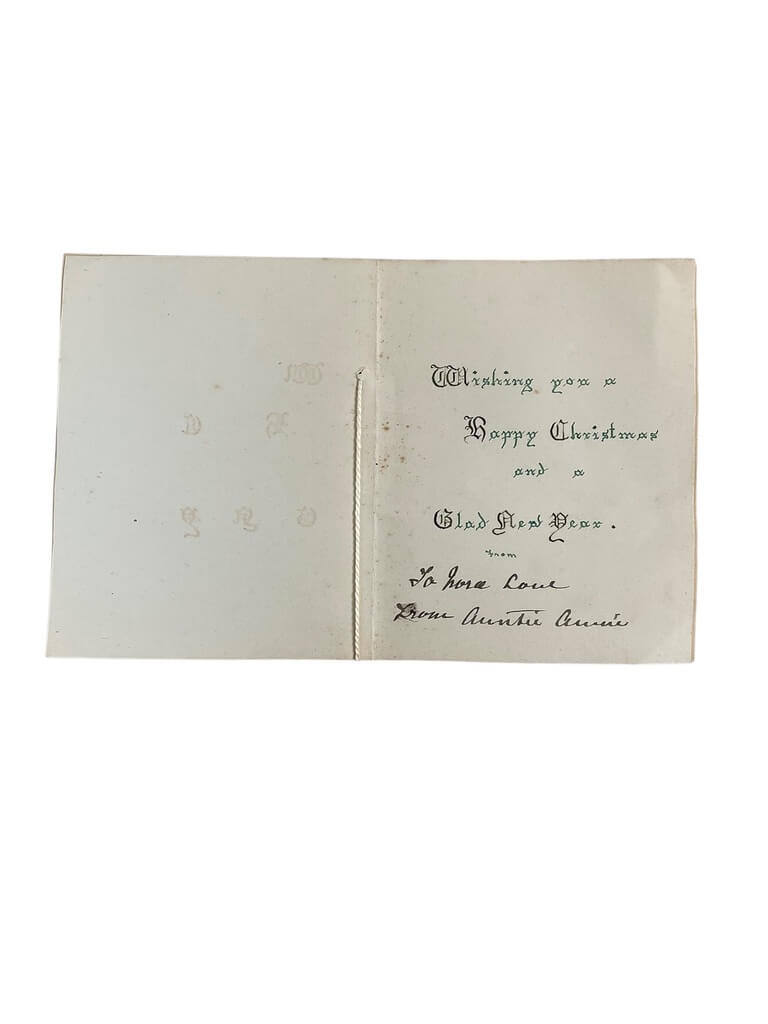 Wishing you a
Happy Christmas
and a
Glad New Year.
from
To Nora Love
From Auntie Annie